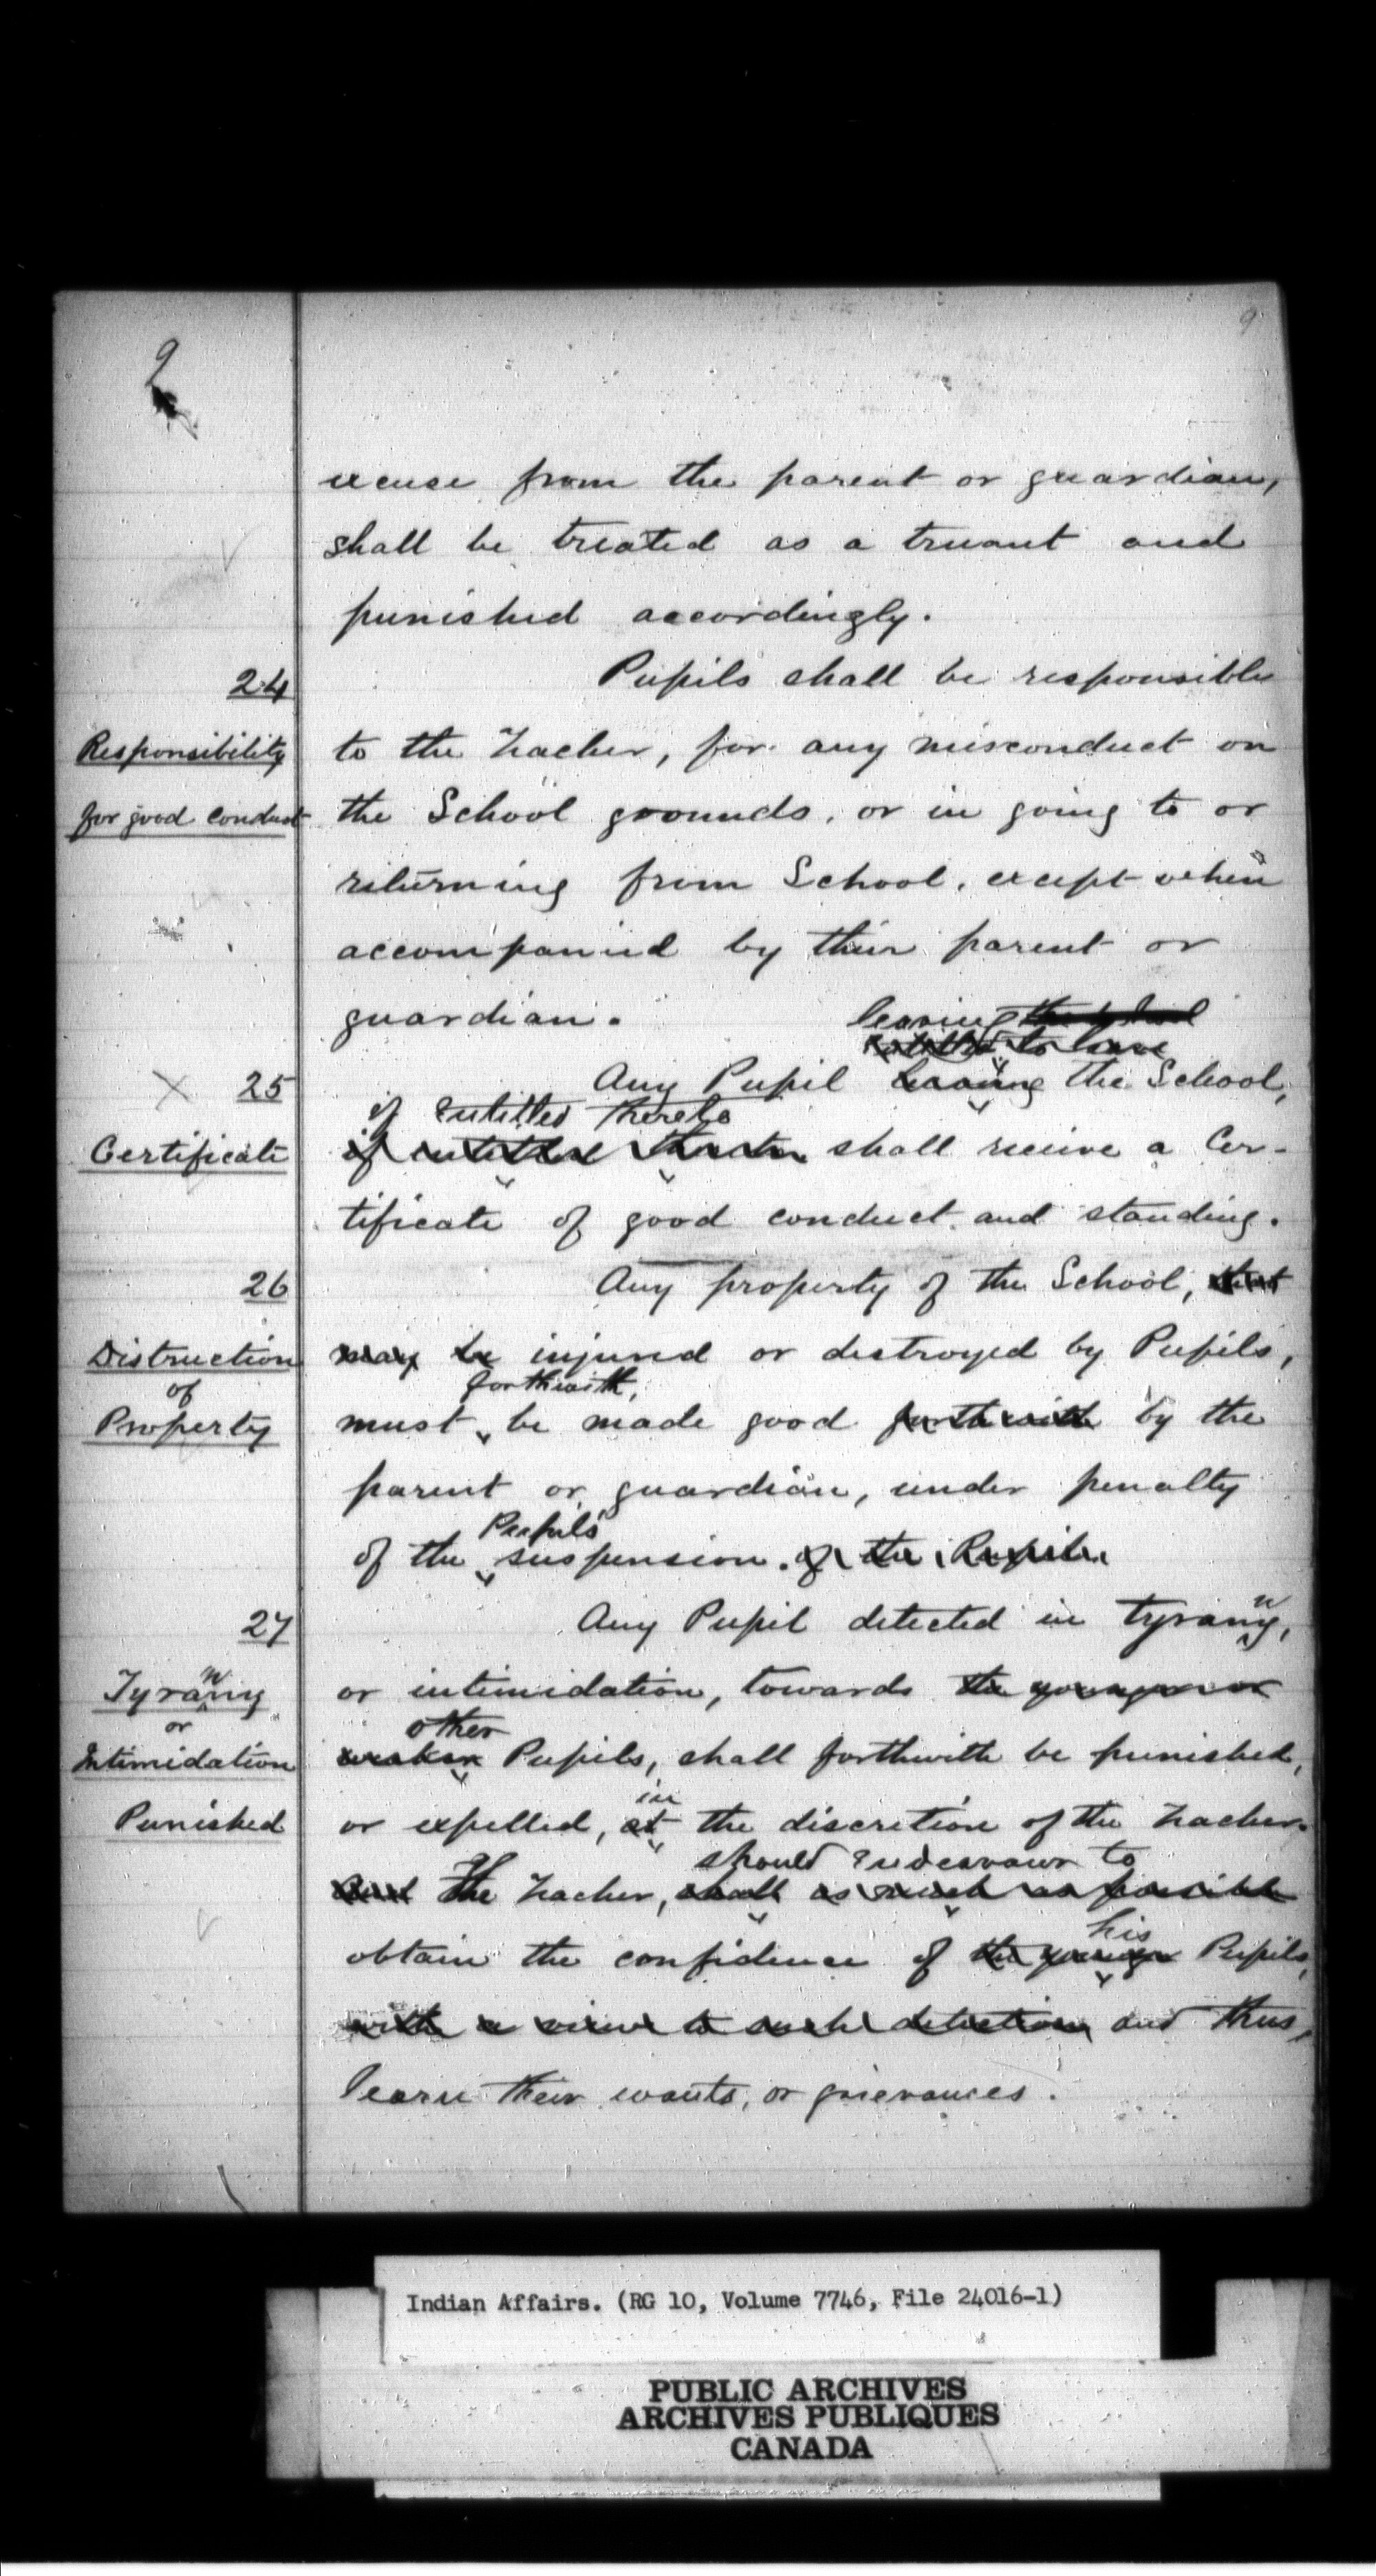 9
9
excuse from the parent or guardian,
shall be treated as a truant and
punished accordingly.
24
Pupils shall be responsible
Responsibility
to the Teacher, for any misconduct on
for good conduct
the School grounds, or in going to or
returning from School, except when
accompanied by their parent or
guardian.
leaving the school
entitled to leave
25
Any Pupil leaving the School,
if entitled thereto
Certificate
if entitled thereto shall receive a Cer-
tificate of good conduct and standing.
26
Any property of the School, that
Distruction
may be injured or destroyed by Pupils,
of
forthwith,
Property
must be made good forthwith by the
parent or guardian, under penalty
Pupils
of the suspension. of the Pupil.
27
Any Pupil detected in tyranny,
Tyranny
or intimidation, towards the younger or
or
other
Intimidation
weaker Pupils, shall forthwith be punished,
in
Punished
or expelled, at the discretion of the Teacher.
should endeavour to
And The Teacher, shall as much as possible
his
obtain the confidence of the younger Pupils,
with a view to such detection, and thus,
learn their wants, or grievances.
Indian Affairs. (RG 10, Volume 7746, File 24016-1)
PUBLIC ARCHIVES
ARCHIVES PUBLIQUES
CANADA